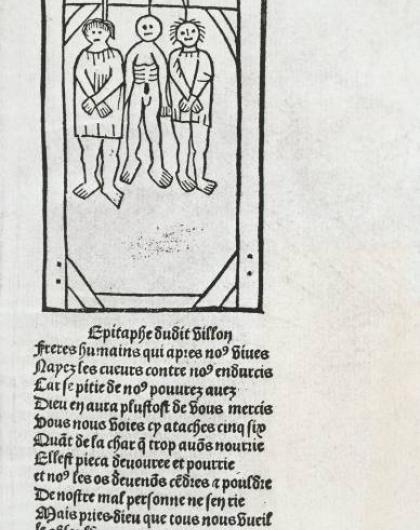 Epitaphe dudit Villon
Freres humains qui apres noꝰ viues
Nayez les cueurs contre noꝰ endurcis
Car se pitie de noꝰ pouurez auez
Dieu en aura plustost de vous mercis
Vous nous voies cy ataches cinq six
Quāt de la char q̄ trop auōs nourrie
Ellest pieca deuouree et pourrie
et noꝰ les os deuenōs cēdres ⁊ pouldre
De nostre mal personne ne sen rie
Mais pries dieu que tous nous vueil